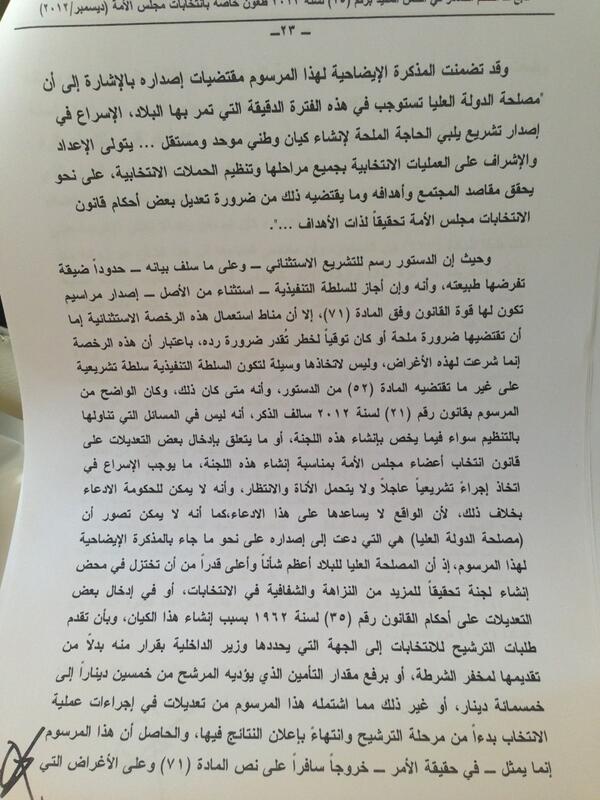 لسنة ٢٠١٢ طعون خاصة بانتخابات مجلس الأمة (ديسمبر/٢٠١٢)
ــ ٢٣ ــ
وقد تضمنت المذكرة الإيضاحية لهذا المرسوم مقتضيات إصداره بالإشارة إلى أن
"مصلحة الدولة العليا تستوجب في هذه الفترة الدقيقة التي تمر بها البلاد، الإسراع في
إصدار تشريع يلبي الحاجة الملحة لإنشاء كيان وطني موحد ومستقل ... يتولى الإعداد
والإشراف على العمليات الانتخابية بجميع مراحلها وتنظيم الحملات الانتخابية، على نحو
يحقق مقاصد المجتمع وأهدافه وما يقتضيه ذلك من ضرورة تعديل بعض أحكام قانون
الانتخابات مجلس الأمة تحقيقاً لذات الأهداف ...".
وحيث إن الدستور رسم للتشريع الاستثنائي ــ وعلى ما سلف بيانه ــ حدوداً ضيقة
تفرضها طبيعته، وأنه وإن أجاز للسلطة التنفيذية ــ استثناء من الأصل ــ إصدار مراسيم
تكون لها قوة القانون وفق المادة (٧١)، إلا أن مناط استعمال هذه الرخصة الاستثنائية إما
أن تقتضيها ضرورة ملحة أو كان توقياً لخطر تُقدر ضرورة رده، باعتبار أن هذه الرخصة
إنما شرعت لهذه الأغراض، وليس لاتخاذها وسيلة لتكون السلطة التنفيذية سلطة تشريعية
على غير ما تقتضيه المادة (٥٢) من الدستور، وأنه متى كان ذلك، وكان الواضح من
المرسوم بقانون رقم (٢١) لسنة ٢٠١٢ سالف الذكر، أنه ليس في المسائل التي تناولها
بالتنظيم سواء فيما يخص بإنشاء هذه اللجنة، أو ما يتعلق بإدخال بعض التعديلات على
قانون انتخاب أعضاء مجلس الأمة بمناسبة إنشاء هذه اللجنة، ما يوجب الإسراع في
اتخاذ إجراءً تشريعياً عاجلاً ولا يتحمل الأناة والانتظار، وأنه لا يمكن للحكومة الادعاء
بخلاف ذلك، لأن الواقع لا يساعدها على هذا الادعاء،كما أنه لا يمكن تصور أن
(مصلحة الدولة العليا) هي التي دعت إلى إصداره على نحو ما جاء بالمذكرة الإيضاحية
لهذا المرسوم، إذ أن المصلحة العليا للبلاد أعظم شأناً وأعلى قدراً من أن تختزل في محض
إنشاء لجنة تحقيقاً للمزيد من النزاهة والشفافية في الانتخابات، أو في إدخال بعض
التعديلات على أحكام القانون رقم (٣٥) لسنة ١٩٦٢ بسبب إنشاء هذا الكيان، وبأن تقدم
طلبات الترشيح للانتخابات إلى الجهة التي يحددها وزير الداخلية بقرار منه بدلاً من
تقديمها لمخفر الشرطة، أو برفع مقدار التأمين الذي يؤديه المرشح من خمسين ديناراً إلى
خمسمائة دينار، أو غير ذلك مما اشتمله هذا المرسوم من تعديلات في إجراءات عملية
الانتخاب بدءاً من مرحلة الترشيح وانتهاءً بإعلان النتائج فيها، والحاصل أن هذا المرسوم
إنما يمثل ــ في حقيقة الأمر ــ خروجاً سافراً على نص المادة (٧١) وعلى الأغراض التي